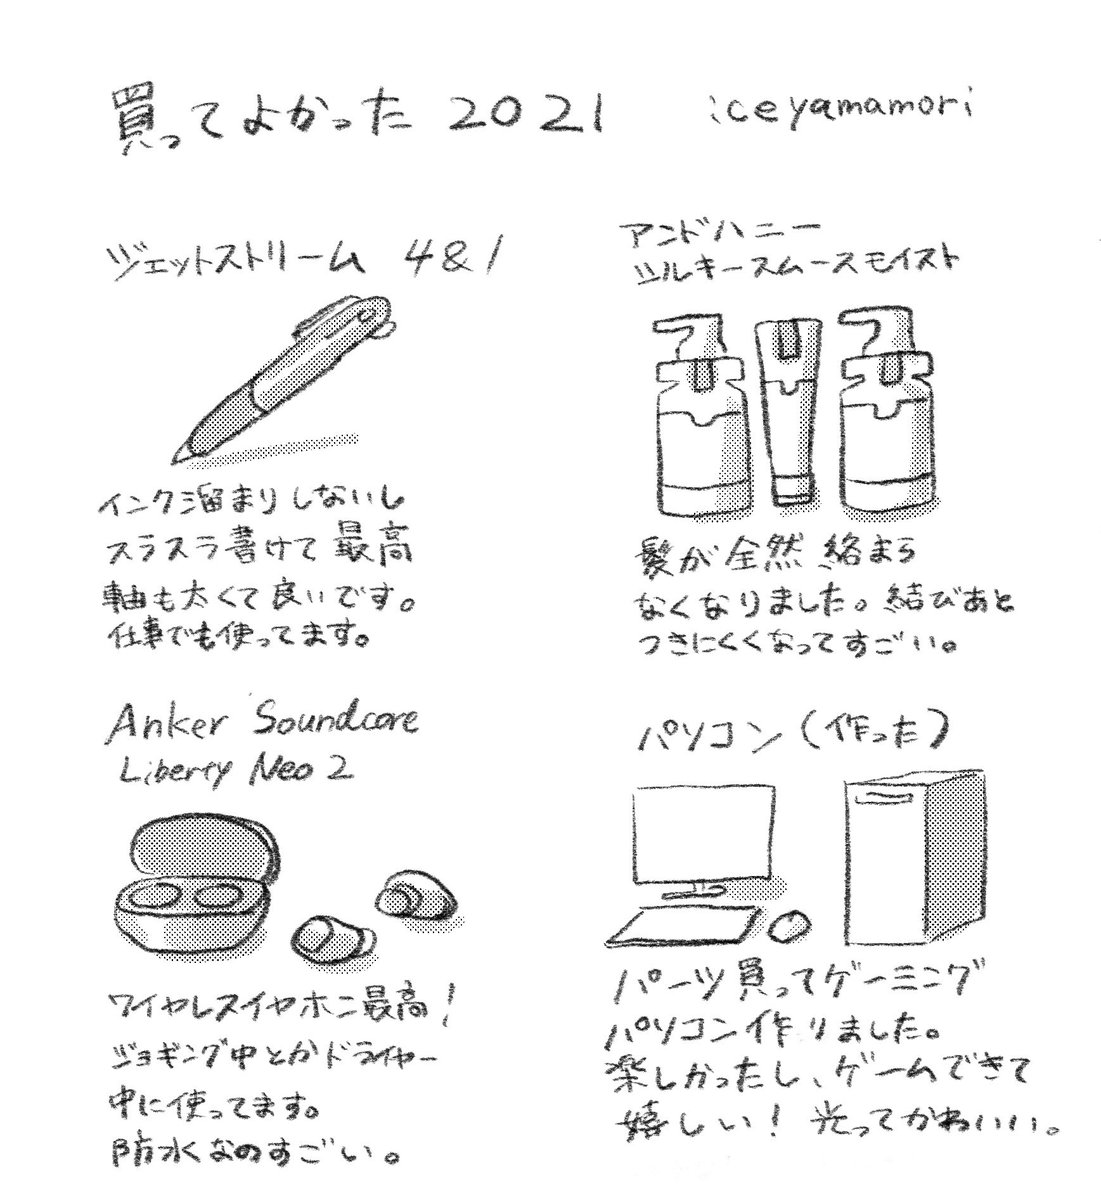 買ってよかった 2021
iceyamamori
ジェットストリーム 4&1
インク溜まりしないし
スラスラ書けて最高
軸も太くて良いです。
仕事でも使ってます。
アンドハニー
シルキースムースモイスト
髪が全然絡まら
なくなりました。結びあと
つきにくくなってすごい。
Anker Soundcore
Liberty Neo 2
ワイヤレスイヤホン最高!
ジョギング中とかドライヤー
中に使ってます。
防水なのすごい。
パソコン(作った)
パーツ買ってゲーミング
パソコン作りました。
楽しかったし、ゲームできて
嬉しい! 光ってかわいい。